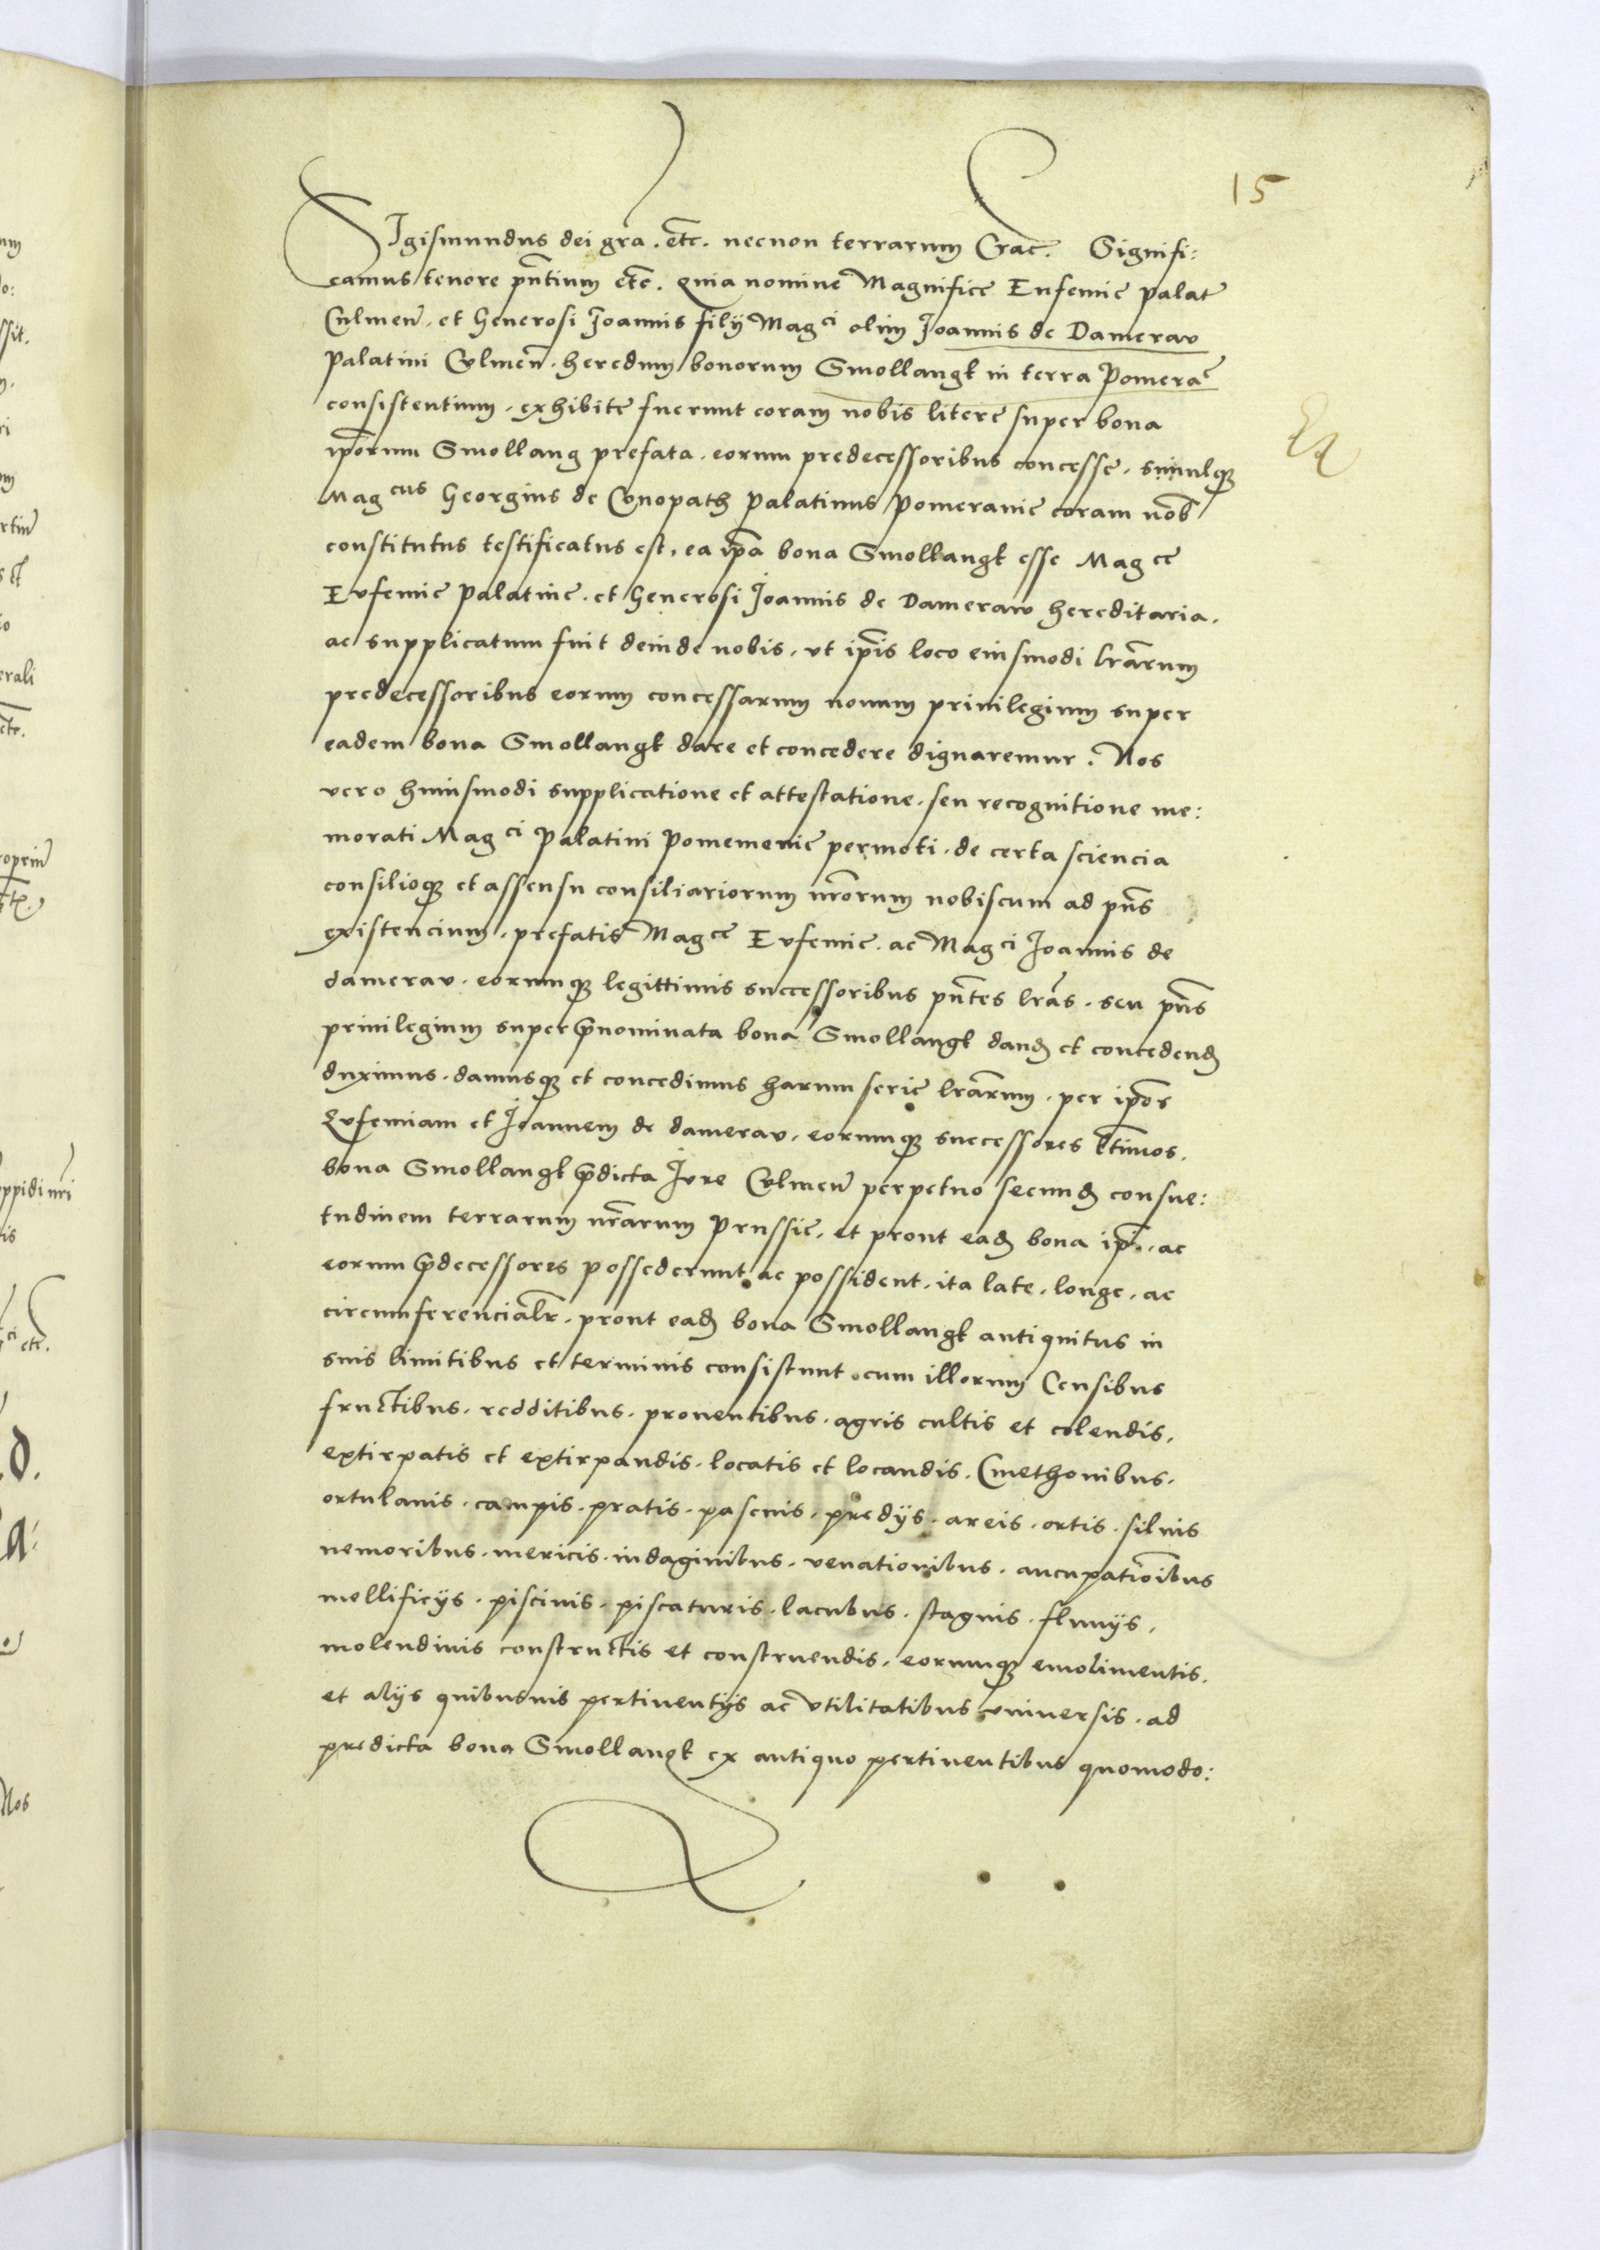 15
Sigismundus dei gra. etc. necnon terrarum Crac. Signifi:
camus tenore pntium etc. quia nomine Magnifice Eufemie palat
Culmen. et Generosi Joannis filij Magci olim Joannis de Damerav
palatini Culmen. heredum bonorum Smollangk in terra Pomerae
consistentium. exhibite fuerunt coram nobis litere super bona
iporum Smollang prefata. eorum predecessoribus concesse. simulque
Magcus Georgius de Conopath palatinus pomeranie coram nob
constitutus testificatus est, ea ipa bona Smollangk esse Magce
Eufemie palatine. et Generosi Joannis de Dameraw hereditaria.
ac supplicatum fuit deinde nobis. ut ipis loco eiusmodi lrarum
predecessoribus eorum concessarum nouum priuilegium super
eadem bona Smollangk dare et concedere dignaremur. Nos
vero huiusmodi supplicatione et attestatione. seu recognitione me:
morati Magci palatini pomemenie permoti. de certa sciencia
consilioque et assensu consiliariorum nrorum nobiscum ad pns
existencium. prefatis Magce Eufemie. ac Magci Joannis de
damerav. eorumque legittimis successoribus pntes lras. seu pns
priuilegium super prenominata bona Smollangk dand et concedend
duximus. damusque et concedimus harum serie lrarum. per ipos
Eufemiam et Joannem de damerav. eorumque successores ltimos.
bona Smollangk predicta Jure Culmen perpetuo secund consue:
tudinem terrarum nrarum Prussie. et prout ead bona ip. ac
eorum predecessores possederunt ac possident. ita late. longe. ac
circumferencialr. prout ead bona Smollangk antiquitus in
suis limitibus et terminis consistunt. cum illorum Censibus
fructibus. redditibus. prouentibus. agris cultis et colendis.
extirpatis et extirpandis. locatis et locandis. Cmethonibus.
ortulanis. campis. pratis. pascuis. predijs. areis. ortis. siluis
nemoribus. mericis. indaginibus. venationibus. aucupationibus
mellificijs. piscinis. piscaturis. lacubus. stagnis. fluuijs.
molendinis constructis et construendis. eorumque emolimentis.
et alijs quibusuis pertinentijs ac vtilitatibus vniuersis. ad
predicta bona Smollangk ex antiquo pertinentibus quomodo: